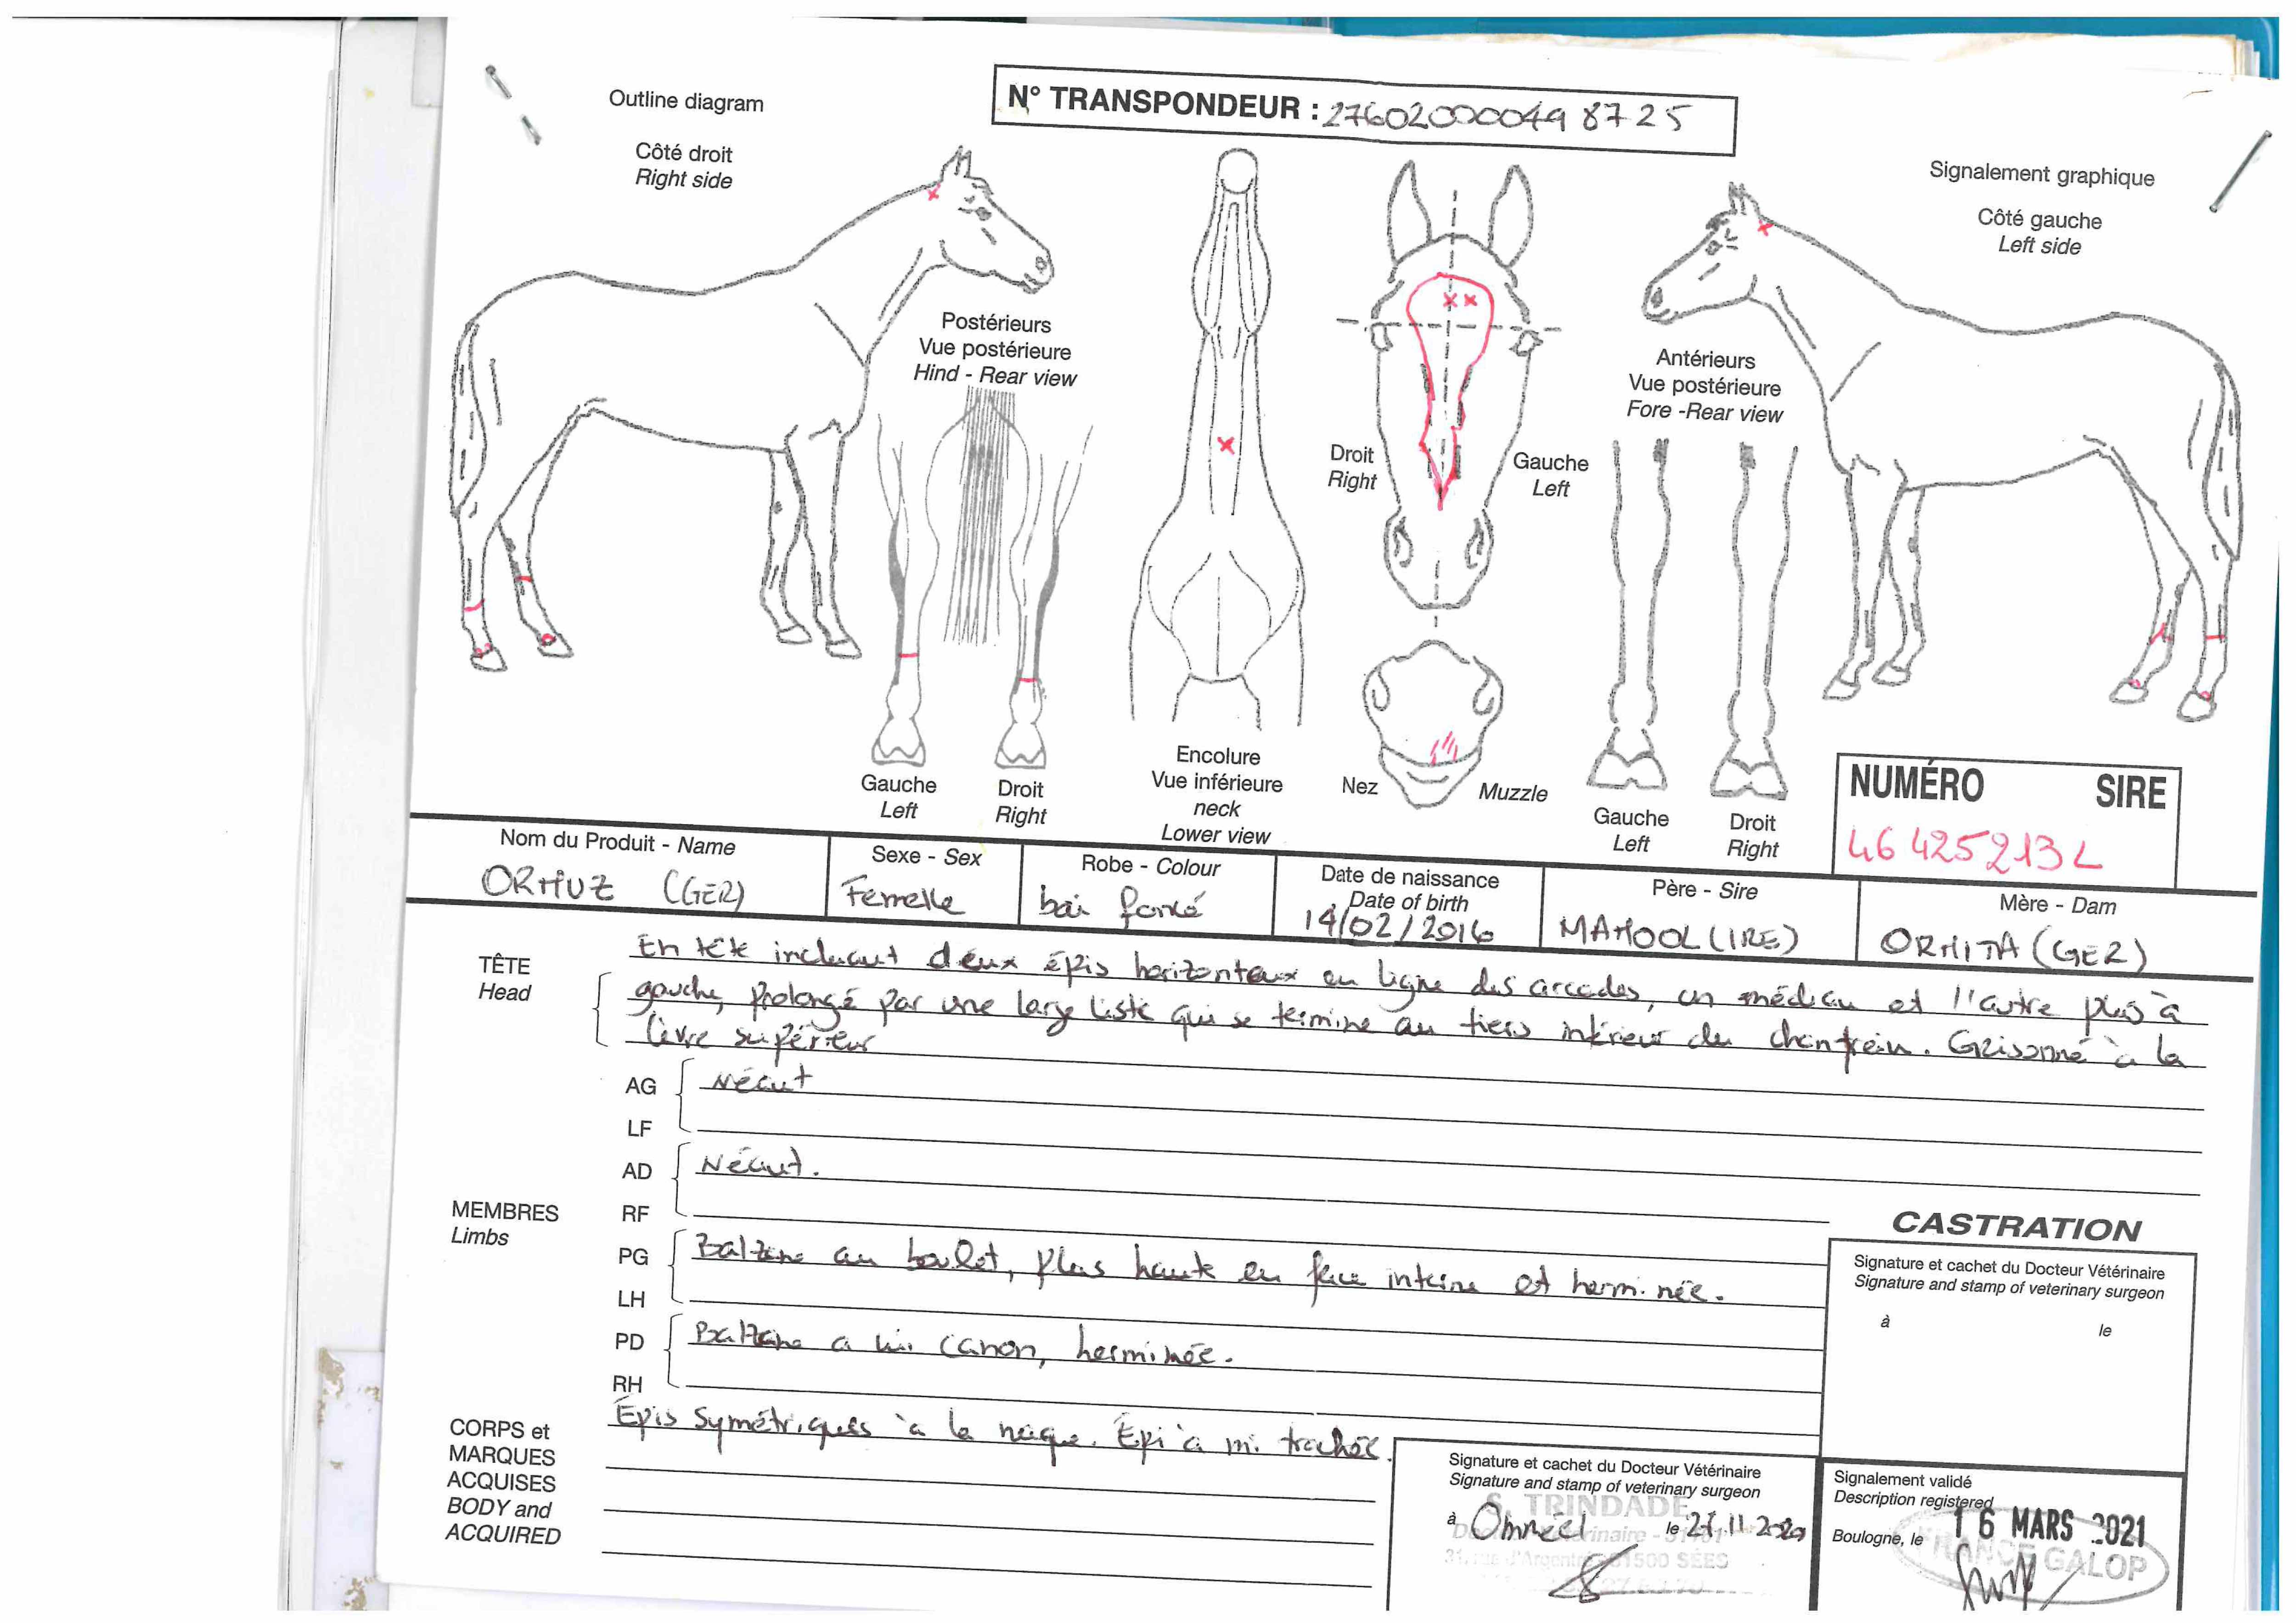 Outline diagram
N° TRANSPONDEUR : 276020000498725
Côté droit
Right side
Signalement graphique
Côté gauche
Left side
Postérieurs
Vue postérieure
Hind - Rear view
Antérieurs
Vue postérieure
Fore -Rear view
Droit
Right
Gauche
Left
Gauche
Left
Droit
Right
Encolure
Vue inférieure
neck
Lower view
Nez
Muzzle
Gauche
Left
Droit
Right
NUMÉRO SIRE
46 425 213 L
Nom du Produit - Name
ORMUZ (GER)
Sexe - Sex
Femelle
Robe - Colour
bai foncé
Date de naissance
Date of birth
14/02/2016
Père - Sire
MAMOOL (IRE)
Mère - Dam
ORMITA (GER)
TÊTE
Head
En tête incluant deux épis horizontaux en ligne des arcades, un médian et l'autre plus à
gauche, prolongé par une large liste qui se termine au tiers inférieur du chanfrein. Grisonné à la
lèvre supérieur
MEMBRES
Limbs
AG
LF
Néant
AD
RF
Néant.
PG
LH
Balzane au boulet, plus haute en face interne et herminée.
PD
RH
Balzane a mi canon, herminée.
CORPS et
MARQUES
ACQUISES
BODY and
ACQUIRED
Épis symétriques à la nuque. Épi à mi trachée.
CASTRATION
Signature et cachet du Docteur Vétérinaire
Signature and stamp of veterinary surgeon
à le
Signature et cachet du Docteur Vétérinaire
Signature and stamp of veterinary surgeon
S. TRINDADE
à le
61500 SÉES
Signalement validé
Description registered
Boulogne, le 16 MARS 2021
FRANCE GALOP